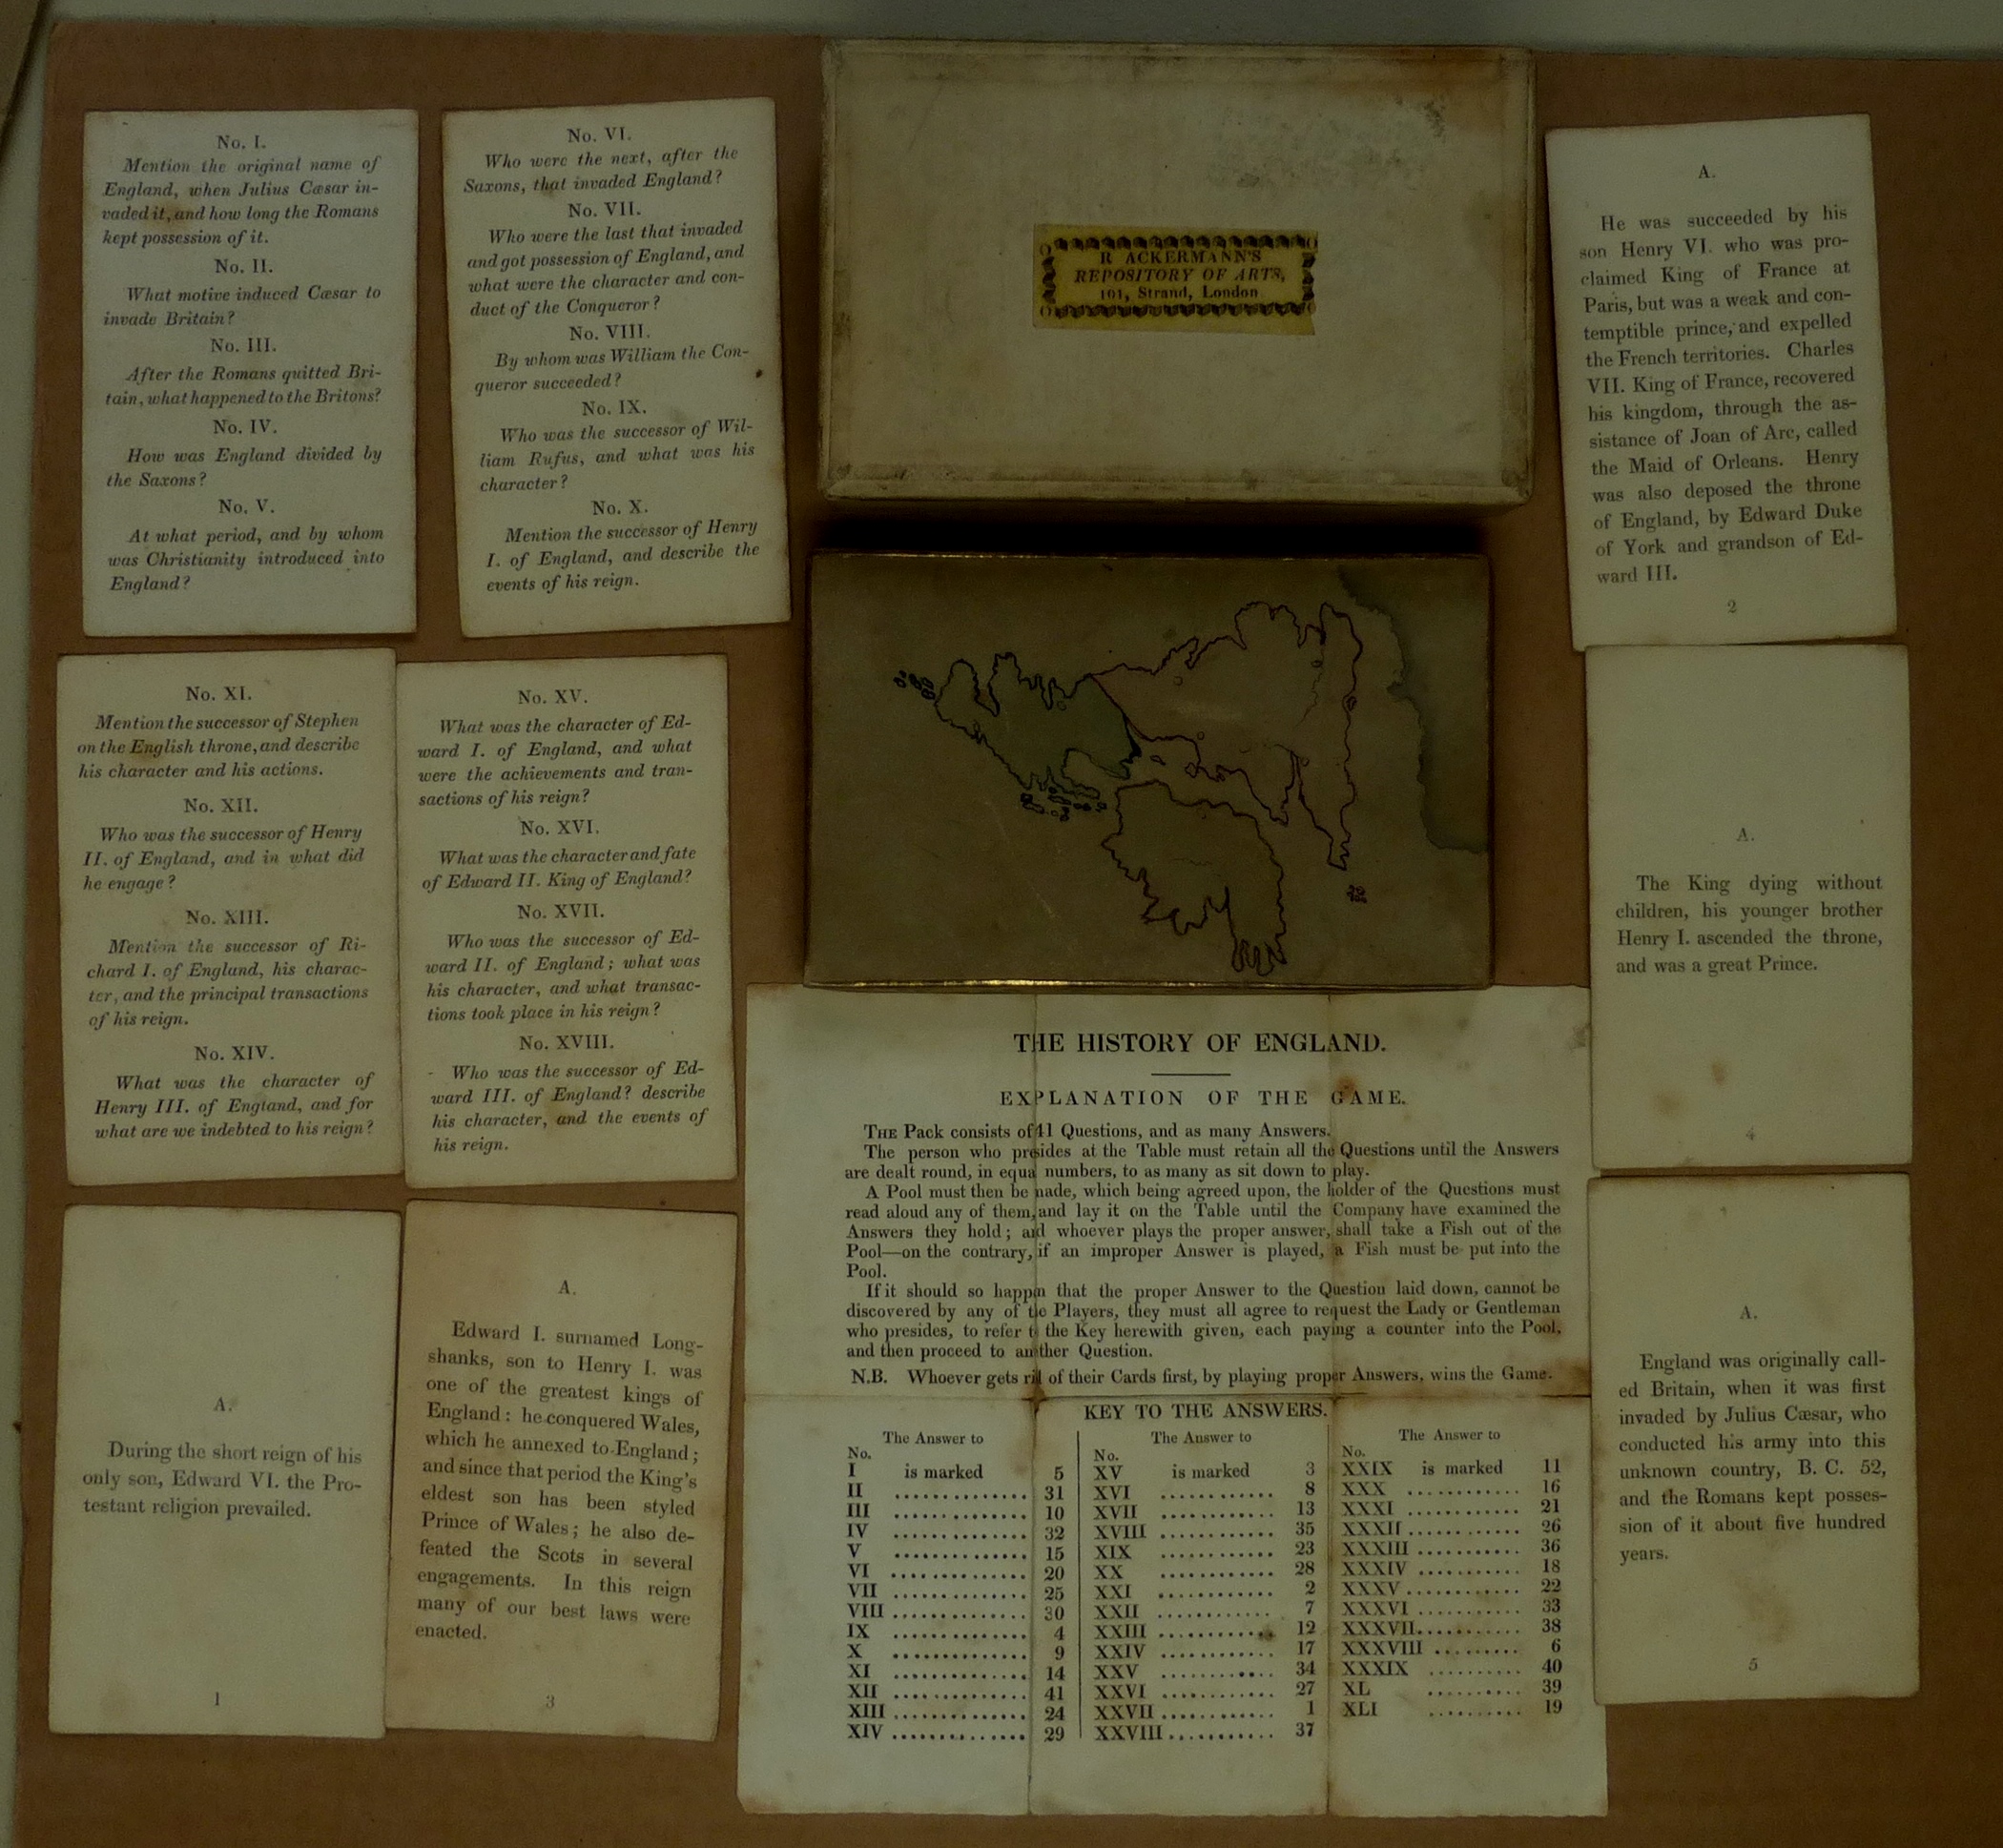 No. I.
Mention the original name of
England, when Julius Cæsar in-
vaded it, and how long the Romans
kept possession of it.
No. II.
What motive induced Cæsar to
invade Britain?
No. III.
After the Romans quitted Bri-
tain, what happened to the Britons?
No. IV.
How was England divided by
the Saxons?
No. V.
At what period, and by whom
was Christianity introduced into
England?
No. VI.
Who were the next, after the
Saxons, that invaded England?
No. VII.
Who were the last that invaded
and got possession of England, and
what were the character and con-
duct of the Conqueror?
No. VIII.
By whom was William the Con-
queror succeeded?
No. IX.
Who was the successor of Wil-
liam Rufus, and what was his
character?
No. X.
Mention the successor of Henry
I. of England, and describe the
events of his reign.
R ACKERMANN'S
REPOSITORY OF ARTS,
101, Strand, London
A.
He was succeeded by his
son Henry VI. who was pro-
claimed King of France at
Paris, but was a weak and con-
temptible prince, and expelled
the French territories. Charles
VII. King of France, recovered
his kingdom, through the as-
sistance of Joan of Arc, called
the Maid of Orleans. Henry
was also deposed the throne
of England, by Edward Duke
of York and grandson of Ed-
ward III.
2
No. XI.
Mention the successor of Stephen
on the English throne, and describe
his character and his actions.
No. XII.
Who was the successor of Henry
II. of England, and in what did
he engage?
No. XIII.
Mention the successor of Ri-
chard I. of England, his charac-
ter, and the principal transactions
of his reign.
No. XIV.
What was the character of
Henry III. of England, and for
what are we indebted to his reign?
No. XV.
What was the character of Ed-
ward I. of England, and what
were the achievements and tran-
sactions of his reign?
No. XVI.
What was the character and fate
of Edward II. King of England?
No. XVII.
Who was the successor of Ed-
ward II. of England; what was
his character, and what transac-
tions took place in his reign?
No. XVIII.
Who was the successor of Ed-
ward III. of England? describe
his character, and the events of
his reign.
A.
The King dying without
children, his younger brother
Henry I. ascended the throne,
and was a great Prince.
4
A.
During the short reign of his
only son, Edward VI. the Pro-
testant religion prevailed.
1
A.
Edward I. surnamed Long-
shanks, son to Henry I. was
one of the greatest kings of
England: he conquered Wales,
which he annexed to England;
and since that period the King's
eldest son has been styled
Prince of Wales; he also de-
feated the Scots in several
engagements. In this reign
many of our best laws were
enacted.
3
THE HISTORY OF ENGLAND.
EXPLANATION OF THE GAME.
THE Pack consists of 41 Questions, and as many Answers.
The person who presides at the Table must retain all the Questions until the Answers
are dealt round, in equal numbers, to as many as sit down to play.
A Pool must then be made, which being agreed upon, the holder of the Questions must
read aloud any of them, and lay it on the Table until the Company have examined the
Answers they hold; and whoever plays the proper answer, shall take a Fish out of the
Pool—on the contrary, if an improper Answer is played, a Fish must be put into the
Pool.
If it should so happen that the proper Answer to the Question laid down, cannot be
discovered by any of the Players, they must all agree to request the Lady or Gentleman
who presides, to refer to the Key herewith given, each paying a counter into the Pool,
and then proceed to another Question.
N.B. Whoever gets rid of their Cards first, by playing proper Answers, wins the Game.
KEY TO THE ANSWERS.
The Answer to
No.
I is marked 5
II .............. 31
III .............. 10
IV .............. 32
V .............. 15
VI .............. 20
VII .............. 25
VIII .............. 30
IX .............. 4
X .............. 9
XI .............. 14
XII .............. 41
XIII .............. 24
XIV .............. 29
The Answer to
No.
XV is marked 3
XVI ............ 8
XVII ............ 13
XVIII ............ 35
XIX ............ 23
XX ............ 28
XXI ............ 2
XXII ............ 7
XXIII ............ 12
XXIV ............ 17
XXV ............ 34
XXVI ............ 27
XXVII ............ 1
XXVIII ........... 37
The Answer to
No.
XXIX is marked 11
XXX ............ 16
XXXI ............ 21
XXXII ............ 26
XXXIII ........... 36
XXXIV ........... 18
XXXV ............ 22
XXXVI ........... 33
XXXVII........... 38
XXXVIII ......... 6
XXXIX .......... 40
XL .......... 39
XLI .......... 19
A.
England was originally call-
ed Britain, when it was first
invaded by Julius Cæsar, who
conducted his army into this
unknown country, B. C. 52,
and the Romans kept posses-
sion of it about five hundred
years.
5